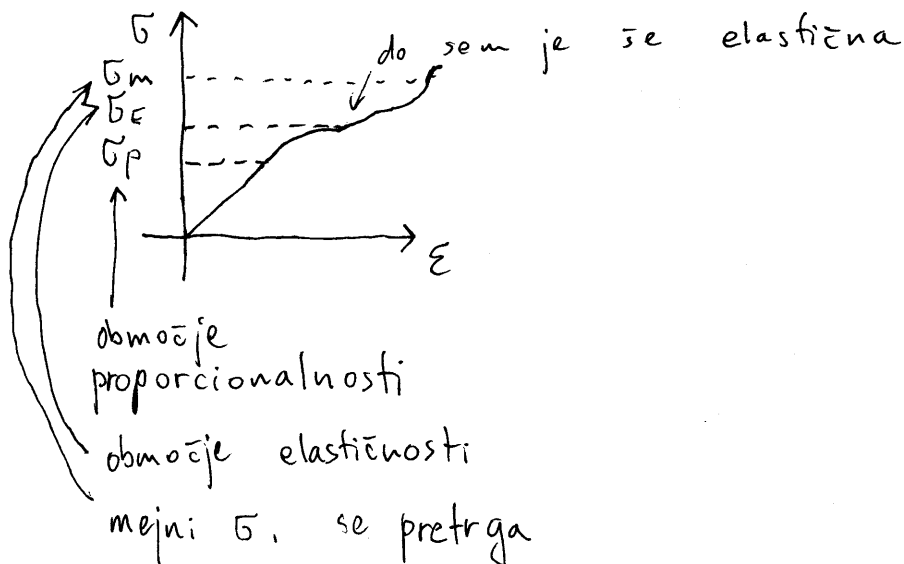 σ
do sem je še elastična
σm
σE
σp
ε
območje
proporcionalnosti
območje elastičnosti
mejni σ, se pretrga